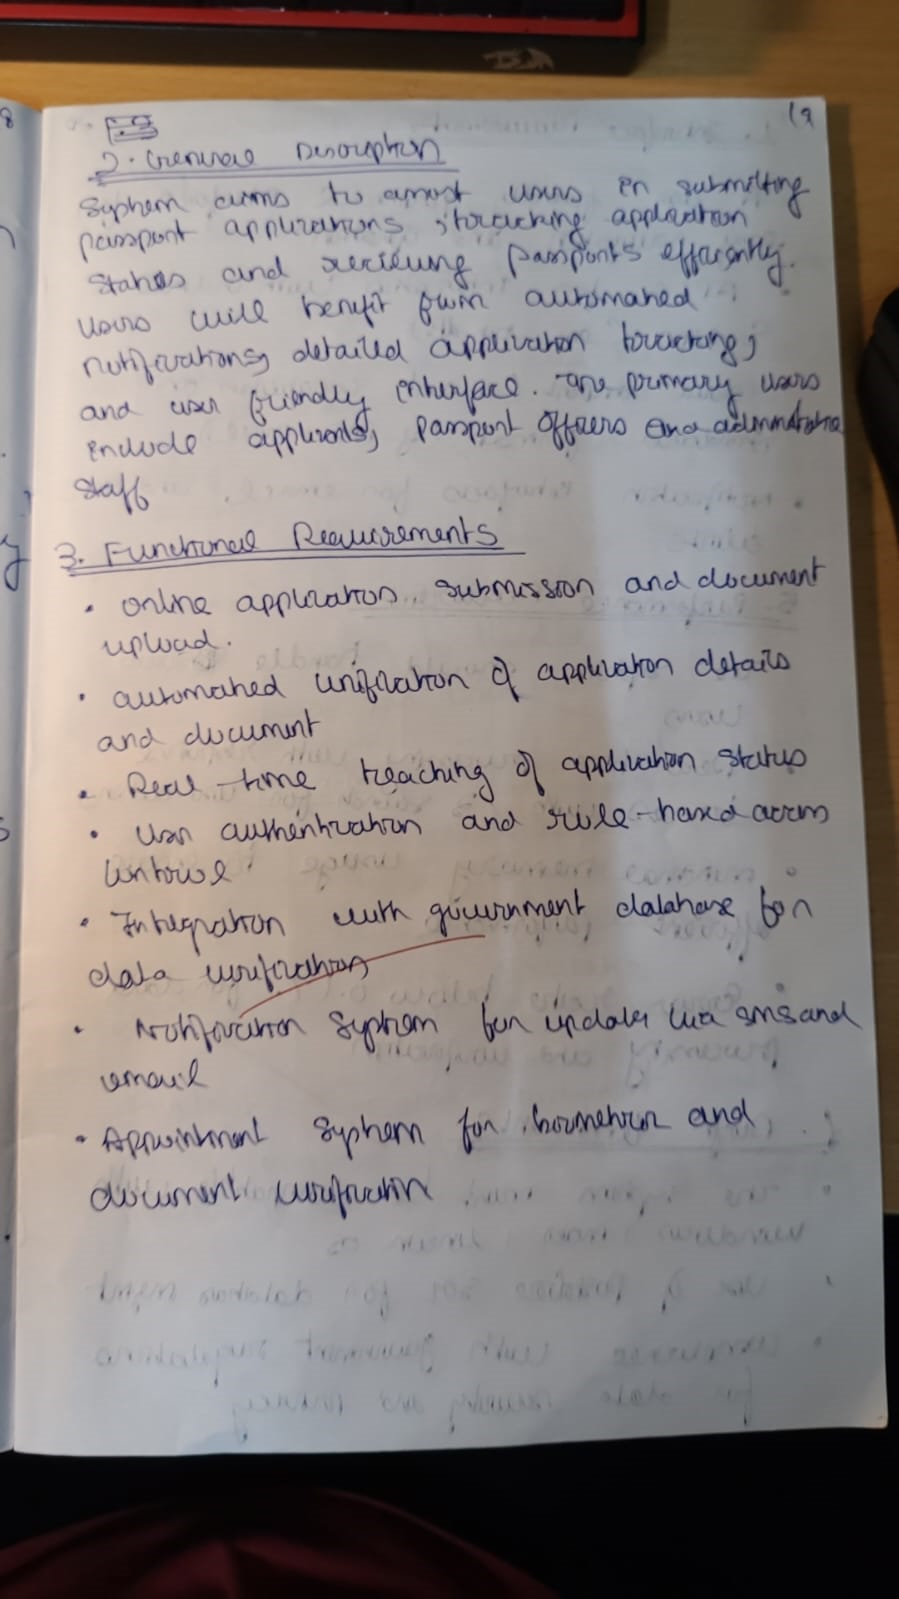 19
2. General Description
System aims to assist users in submitting
passport applications, tracking application
status and receiving passports efficiently.
Users will benefit from automated
notifications, detailed application tracking,
and user friendly interface. The primary users
include applicants, passport officers and administrative
staff
3. Functional Requirements
• Online application submission and document
upload.
• automated verification of application details
and document
• Real-time tracking of application status
• User authentication and role-based access
control
• Integration with government database for
data verification
• Notification system for updates via sms and
email
• Appointment system for biometric and
document verification